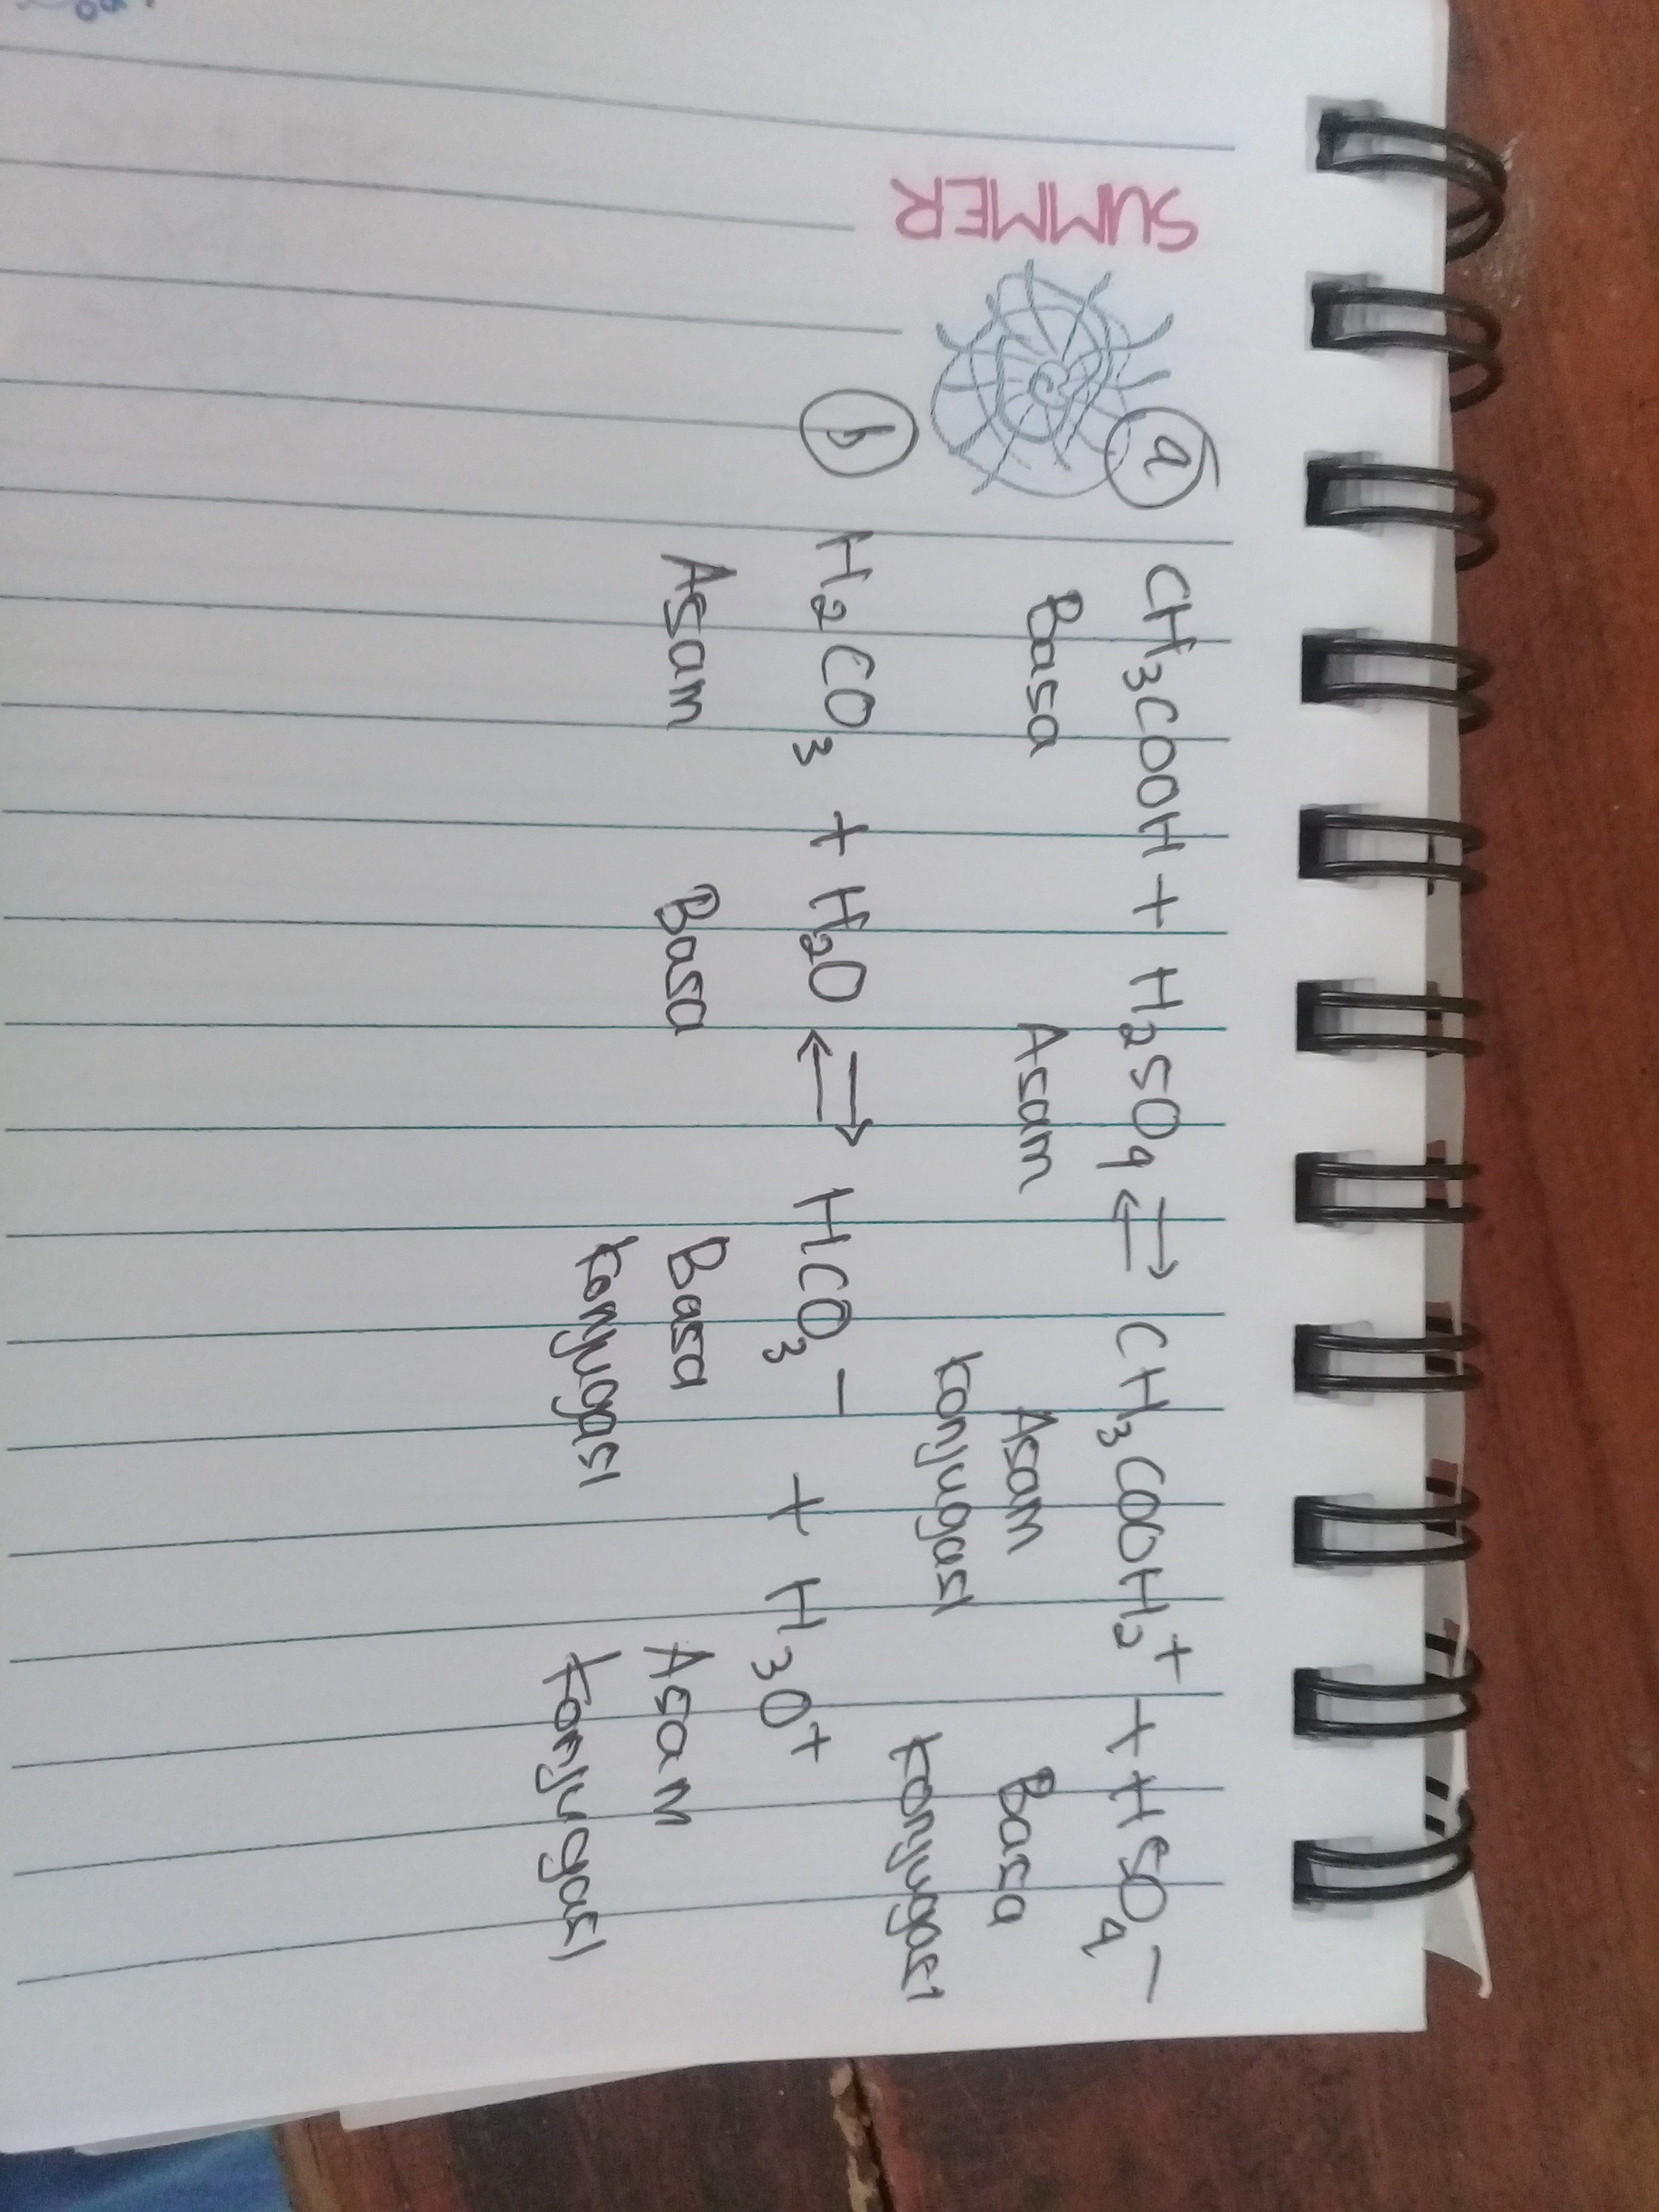 SUMMER
a CH₃COOH + H₂SO₄ ⇌ CH₃COOH₂⁺ + HSO₄⁻
Basa Asam Asam Basa
konjugasi konjugasi
b H₂CO₃ + H₂O ⇌ HCO₃⁻ + H₃O⁺
Asam Basa Basa Asam
konjugasi konjugasi